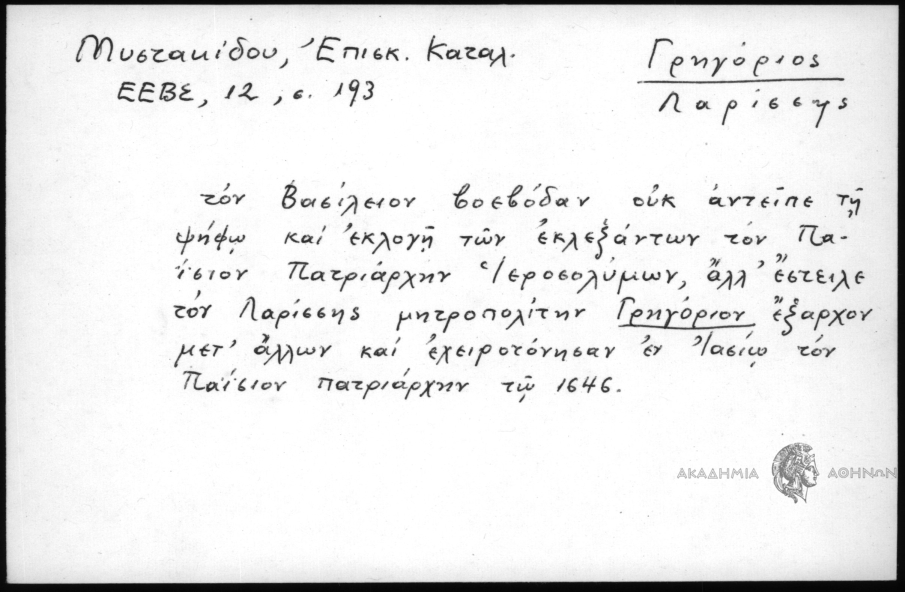 Μυστακίδου, Ἐπισκ. Καταλ.
ΕΕΒΣ, 12, σ. 193
Γρηγόριος
Λαρίσσης
τόν Βασίλειον βοεβόδαν οὐκ ἀντεῖπε τῇ
ψήφῳ καί ἐκλογῇ τῶν ἐκλεξάντων τόν Πα-
ΐσιον Πατριάρχην Ἱεροσολύμων, ἀλλ' ἔστειλε
τόν Λαρίσσης μητροπολίτην Γρηγόριον ἔξαρχον
μετ' ἄλλων καί ἐχειροτόνησαν ἐν Ἰασίῳ τόν
Παΐσιον πατριάρχην τῷ 1646.
ΑΚΑΔΗΜΙΑ ΑΘΗΝΩΝ